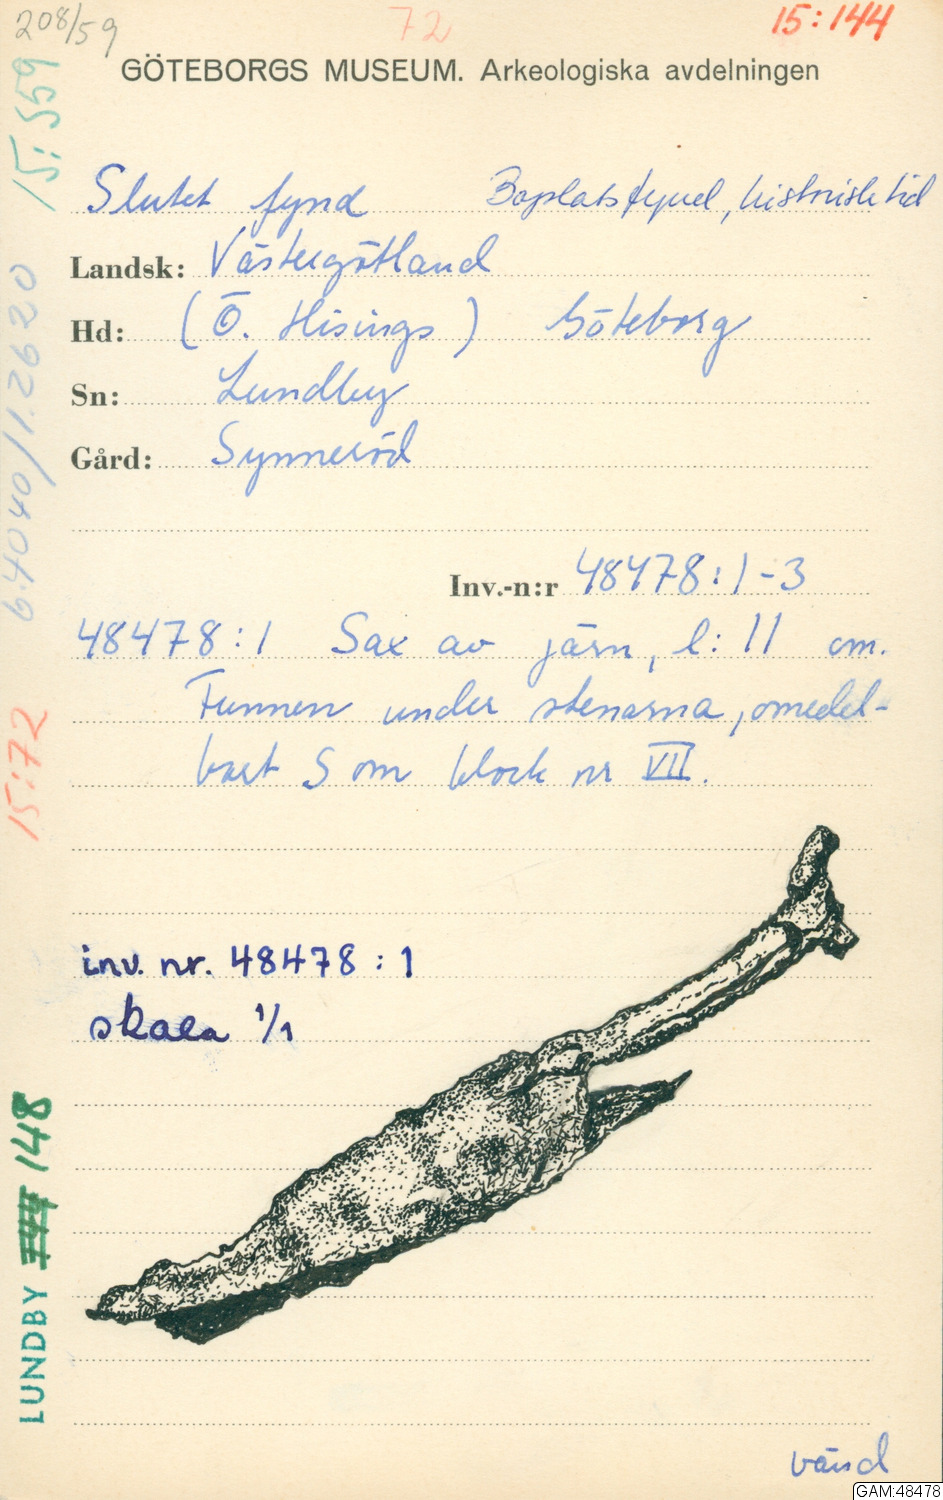 208/59
72
15:144
GÖTEBORGS MUSEUM. Arkeologiska avdelningen
15:559
Slutet fynd Boplatsfynd, historisk tid
Landsk: Västergötland
Hd: (Ö. Hisings) Göteborg
Sn: Lundby
Gård: Synneröd
6:4040/1.2620
Inv.-n:r 48478:1-3
48478:1 Sax av järn, l: 11 cm.
Funnen under stenarna, omedel-
bart S om block nr VII.
15:72
inv. nr. 48478:1
skala 1/1
LUNDBY 148
vänd
GAM:48478